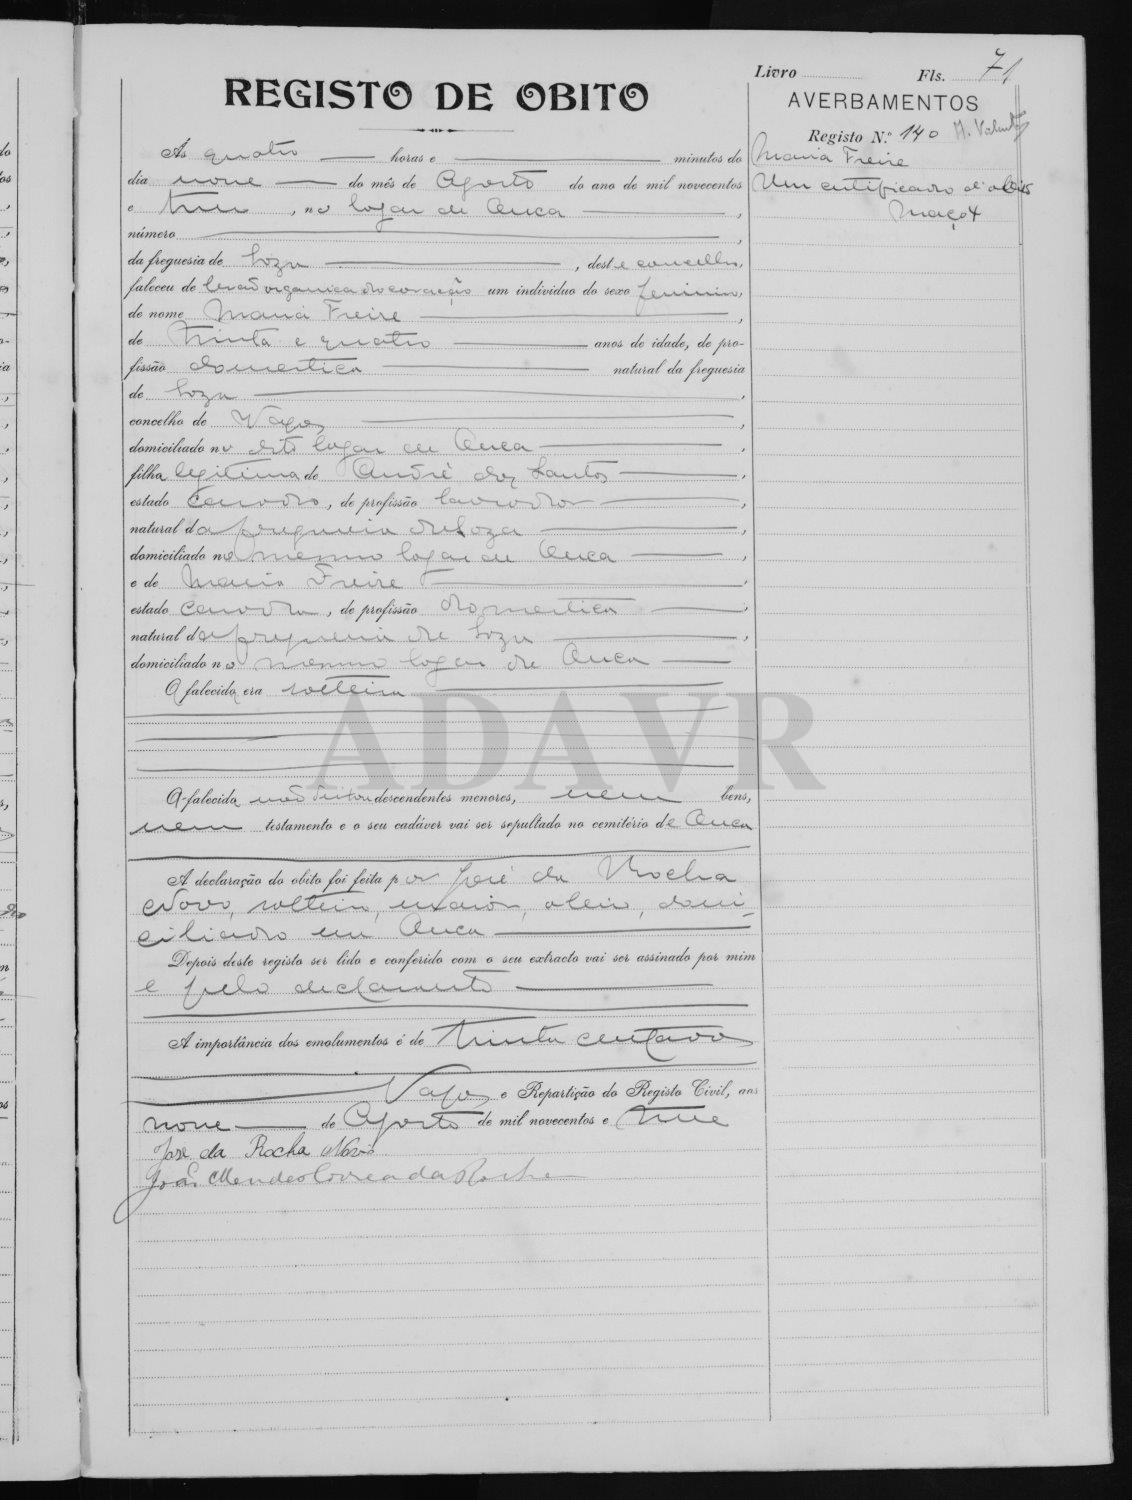 Livro Fls. 71
REGISTO DE OBITO
AVERBAMENTOS
Registo N.º 140
Maria Freire
Um certificado d'obito
Maço 4
Às quatro horas e minutos do
dia nove do mês de Agosto do ano de mil novecentos
e treze, no logar de Ouca,
número,
da freguesia de Soza, deste concelho,
faleceu de lesão organica do coração um individuo do sexo feminino,
de nome Maria Freire,
de trinta e quatro anos de idade, de pro-
fissão domestica natural da freguesia
de Soza,
concelho de Vagos,
domiciliado no dito logar de Ouca,
filha legitima de André dos Santos,
estado casado, de profissão lavrador,
natural da freguesia de Soza,
domiciliado no mesmo logar de Ouca,
e de Maria Freire,
estado casada, de profissão domestica,
natural da freguesia de Soza,
domiciliado no mesmo logar de Ouca
A falecida era solteira
ADAVR
A falecida não deixou descendentes menores, nem bens,
nem testamento e o seu cadáver vai ser sepultado no cemitério de Ouca
A declaração do obito foi feita por José da Rocha
Novo, solteiro, maior, domi-
ciliado em Ouca
Depois deste registo ser lido e conferido com o seu extracto vai ser assinado por mim
e pelo declarante
A importância dos emolumentos é de trinta centavos
Vagos e Repartição do Registo Civil, aos
nove de Agosto de mil novecentos e treze
José da Rocha Novo
João Mendes Correa da Rocha